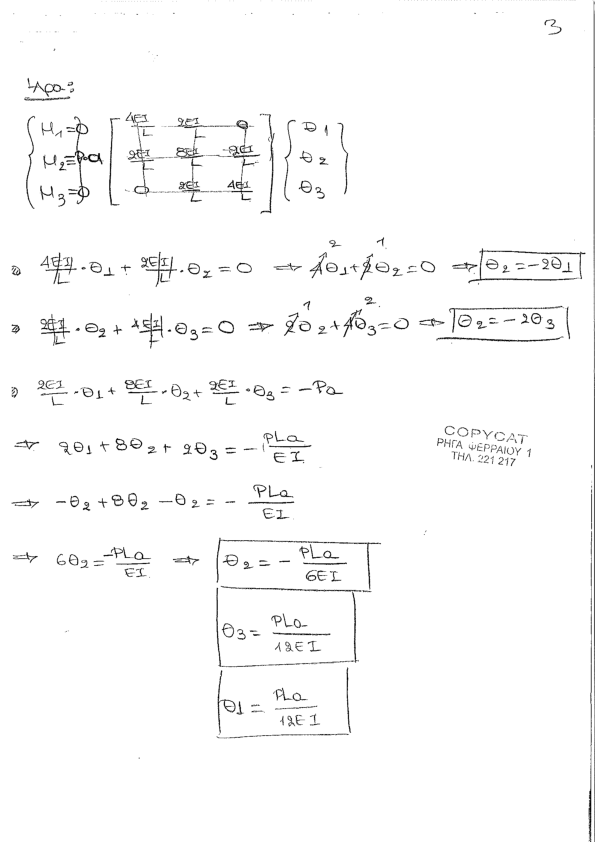 3
Άρα:
{ M1=0 [ 4EI/L 2EI/L 0 ] { θ1
M2=-Pa 2EI/L 8EI/L 2EI/L θ2
M3=0 } 0 2EI/L 4EI/L θ3 }
4EI/L · θ1 + 2EI/L · θ2 = 0 ⇒ 4θ1 + 2θ2 = 0 ⇒ θ2 = -2θ1
2 1
2EI/L · θ2 + 4EI/L · θ3 = 0 ⇒ 2θ2 + 4θ3 = 0 ⇒ θ2 = -2θ3
1 2
2EI/L · θ1 + 8EI/L · θ2 + 2EI/L · θ3 = -Pa
⇒ 2θ1 + 8θ2 + 2θ3 = - PLa/EI
COPYCAT
ΡΗΓΑ ΦΕΡΡΑΙΟΥ 1
ΤΗΛ. 221 217
⇒ -θ2 + 8θ2 - θ2 = - PLa/EI
⇒ 6θ2 = -PLa/EI ⇒ θ2 = - PLa/6EI
θ3 = PLa/12EI
θ1 = PLa/12EI